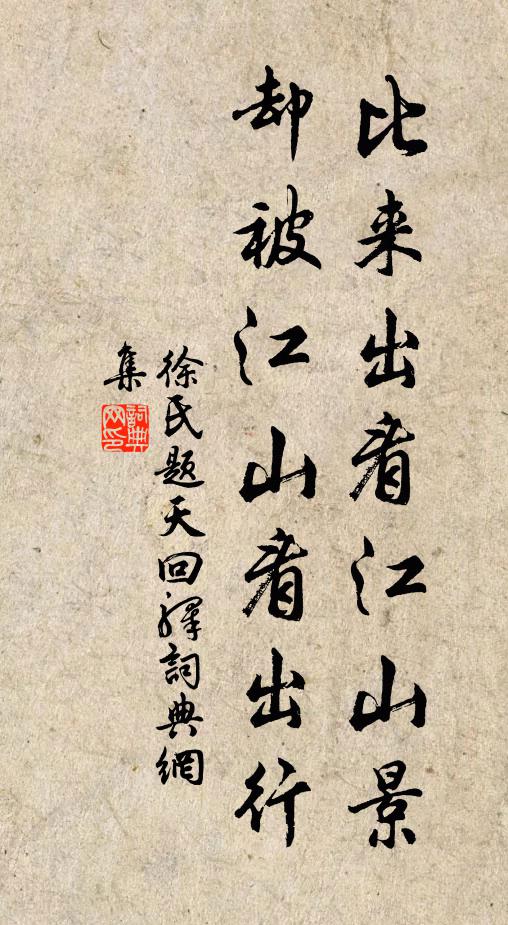 比来出看江山景
却被江山看出行
徐氏题天回驛詞典網
集
詞典
网印